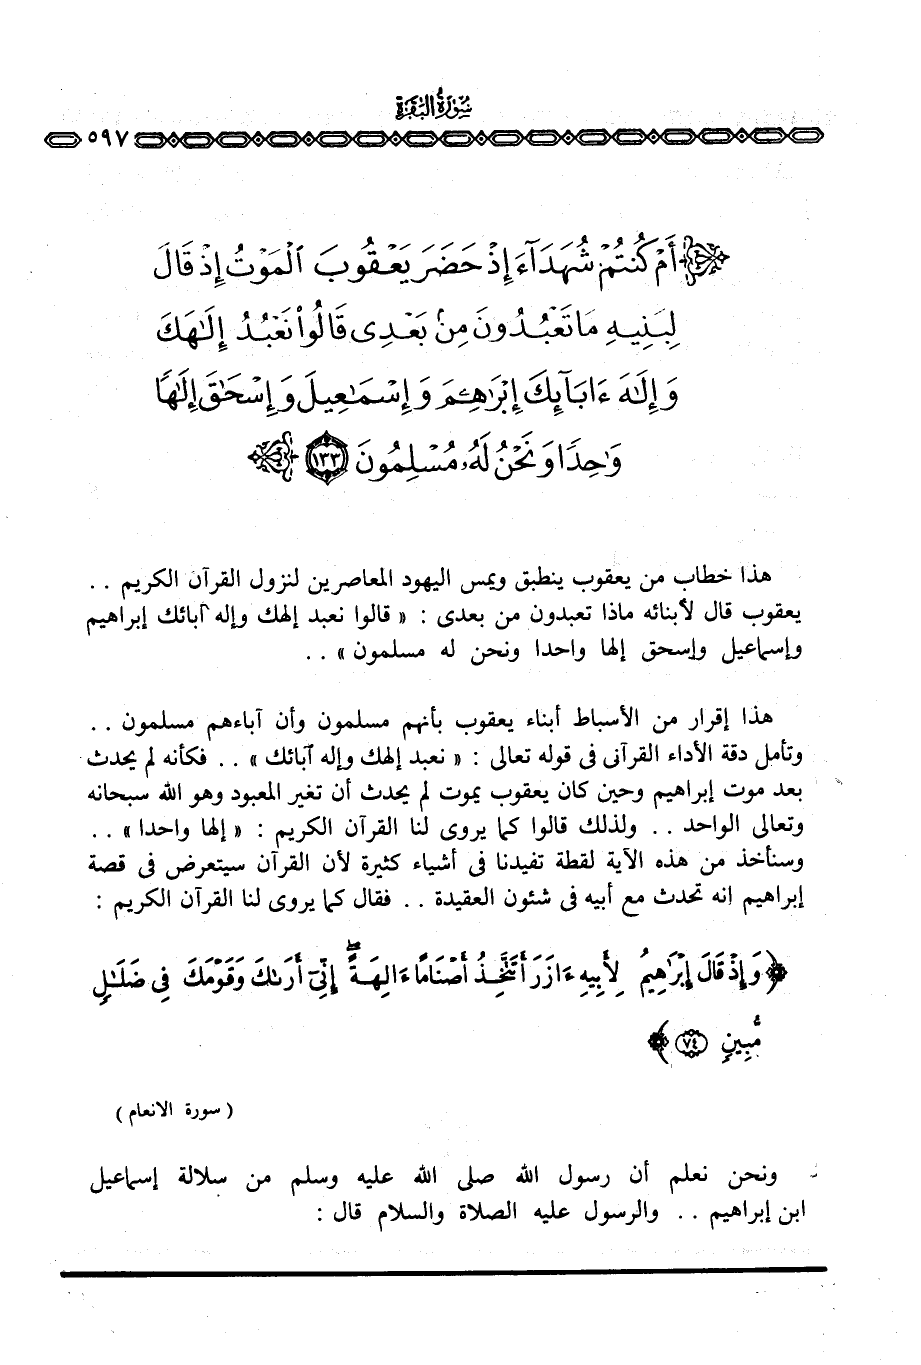 سورة البقرة
٥٩٧
أَمْ كُنتُمْ شُهَدَآءَ إِذْ حَضَرَ يَعْقُوبَ ٱلْمَوْتُ إِذْ قَالَ
لِبَنِيهِ مَا تَعْبُدُونَ مِنۢ بَعْدِى قَالُوا۟ نَعْبُدُ إِلَٰهَكَ
وَإِلَٰهَ ءَابَآئِكَ إِبْرَٰهِـۧمَ وَإِسْمَٰعِيلَ وَإِسْحَٰقَ إِلَٰهًا
وَٰحِدًا وَنَحْنُ لَهُۥ مُسْلِمُونَ ١٣٣
هذا خطاب من يعقوب ينطبق ويمس اليهود المعاصرين لنزول القرآن الكريم . .
يعقوب قال لأبنائه ماذا تعبدون من بعدى : « قالوا نعبد إلهك وإله آبائك إبراهيم
وإسماعيل وإسحق إلها واحدا ونحن له مسلمون » . .
هذا إقرار من الأسباط أبناء يعقوب بأنهم مسلمون وأن آباءهم مسلمون . .
وتأمل دقة الأداء القرآنى فى قوله تعالى : « نعبد إلهك وإله آبائك » . . فكأنه لم يحدث
بعد موت إبراهيم وحين كان يعقوب يموت لم يحدث أن تغير المعبود وهو الله سبحانه
وتعالى الواحد . . ولذلك قالوا كما يروى لنا القرآن الكريم : « إلها واحدا » . .
وسنأخذ من هذه الآية لقطة تفيدنا فى أشياء كثيرة لأن القرآن سيتعرض فى قصة
إبراهيم انه تحدث مع أبيه فى شئون العقيدة . . فقال كما يروى لنا القرآن الكريم :
﴿ وَإِذْ قَالَ إِبْرَٰهِيمُ لِأَبِيهِ ءَازَرَ أَتَتَّخِذُ أَصْنَامًا ءَالِهَةً ۖ إِنِّىٓ أَرَىٰكَ وَقَوْمَكَ فِى ضَلَٰلٍ
مُّبِينٍ ٧٤ ﴾
( سورة الانعام )
ونحن نعلم أن رسول الله صلى الله عليه وسلم من سلالة إسماعيل
ابن إبراهيم . . والرسول عليه الصلاة والسلام قال :